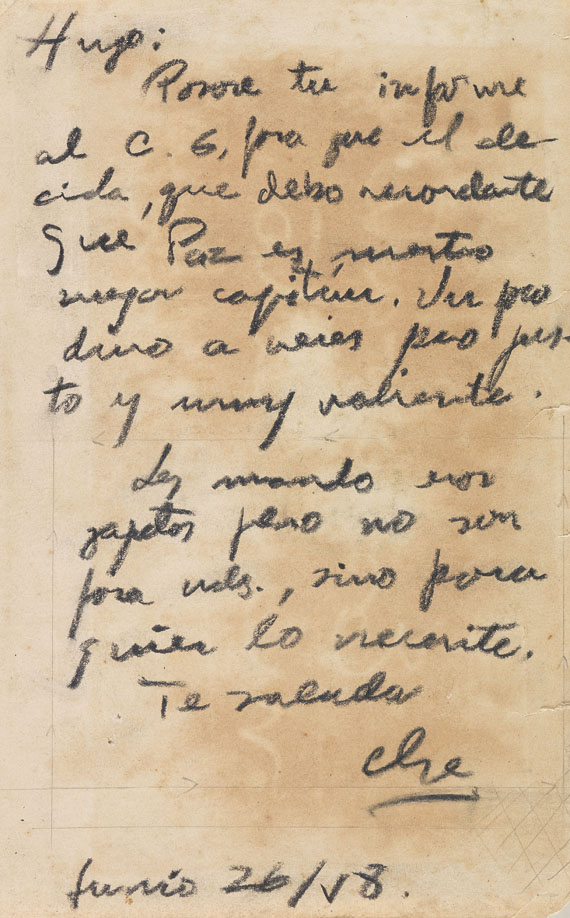 Hugo:
Pasaré tu informe
al C. G, para que el de-
cida, que debo recordarte
que Paz es nuestro
mejor capitán. Un poco
duro a veces pero jus-
to y muy valiente.
Les mando esos
zapatos pero no son
para uds., sino para
quien lo necesite.
Te saluda
Che
Junio 26/58.